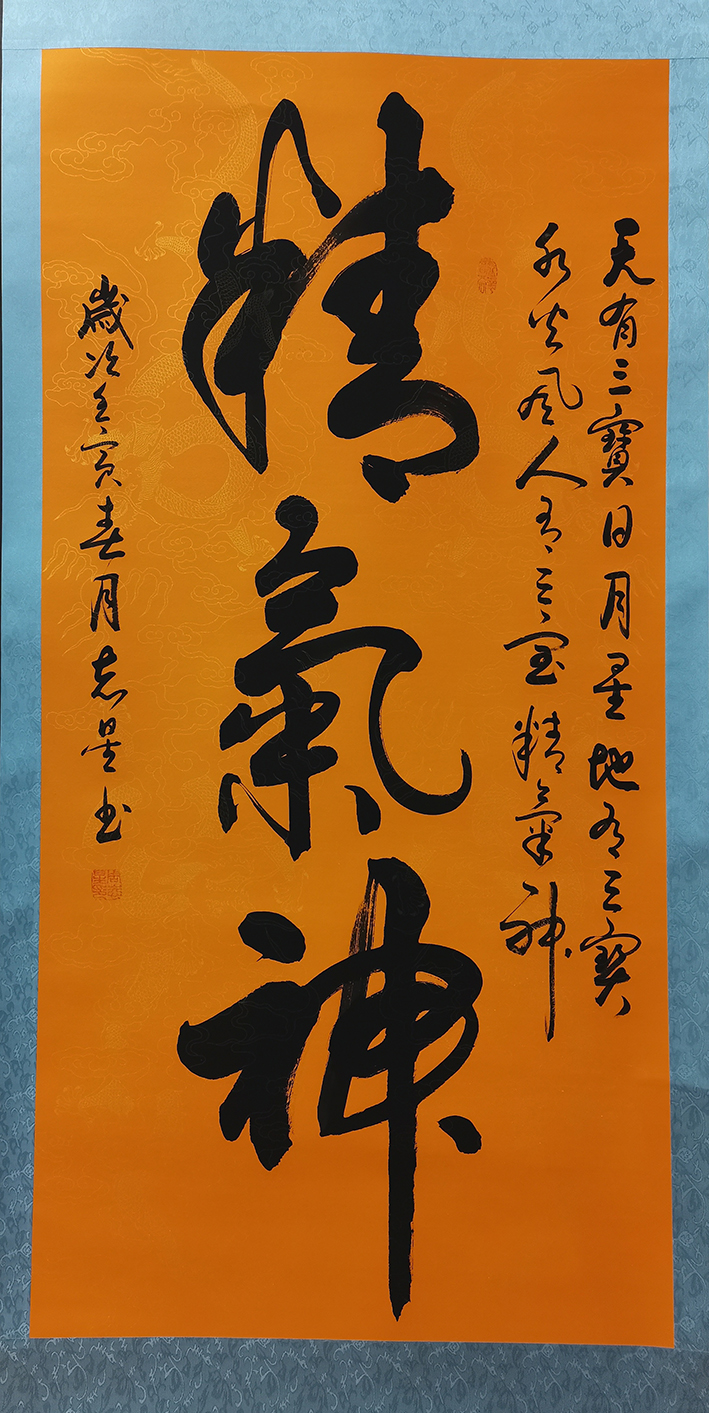 天有三寶日月星地有三寶
水火风人有三宝精氣神
精氣神
歲次壬寅春月志星书